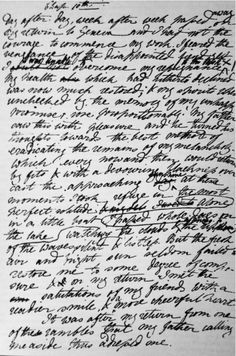 Chap. 10th
Day after day, week after week passed away
my return to Geneva and I had not the
courage to commence my work. I feared the
vengeance of the disappointed fiend
I to overcome my
my health which had hitherto declined
was now much restored; & my spirits when
unchecked by the memory of my unhappy
promise, rose proportionably. My father
saw this with pleasure and he turned his
thoughts toward the best method of
eradicating the remains of my melancholy
which every now and then would return
by fits & with a devouring blackness over
cast the approaching At these
moments I took refuge in the most
perfect solitude. I alone
in a little boat I passed whole days on
the lake watching the clouds &
of the waves silent & listless. But the fresh
air and bright sun seldom failed to
restore me to some degree
& on my return I met the
salutations of my friends with a
readier smile & more cheerful heart.
It was after my return from one
of these rambles that my father calling
me aside thus addressed me.